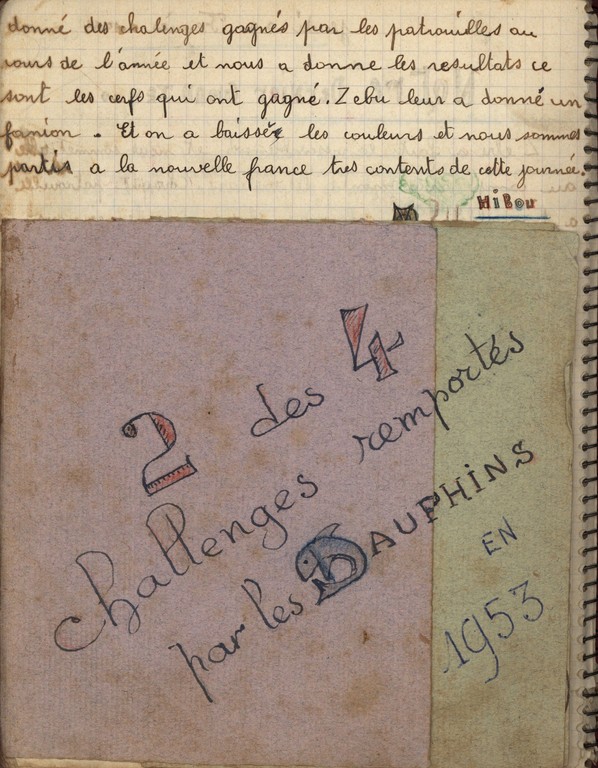 donné des chalenges gagnés par les patrouilles au
cours de l'année et nous a donne les resultats ce
sont les cerfs qui ont gagné. Zebu leur a donné un
fanion. Et on a baissé les couleurs et nous sommes
partis a la nouvelle france tres contents de cette journée.
HiBou
2 des 4
challenges remportés
par les DAUPHiNS
EN
1953